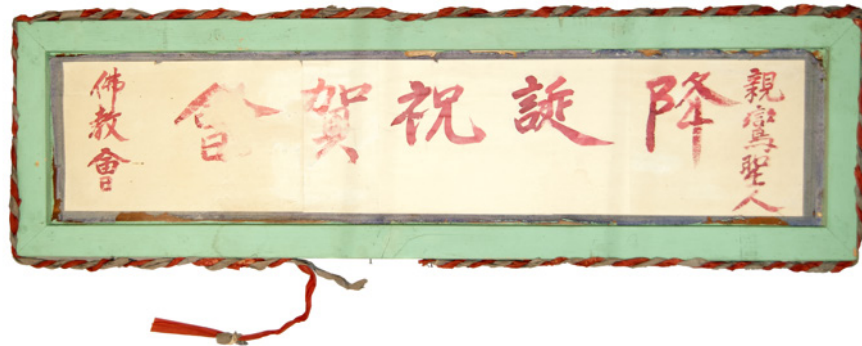 親鸞聖人
降誕祝賀會
佛教會